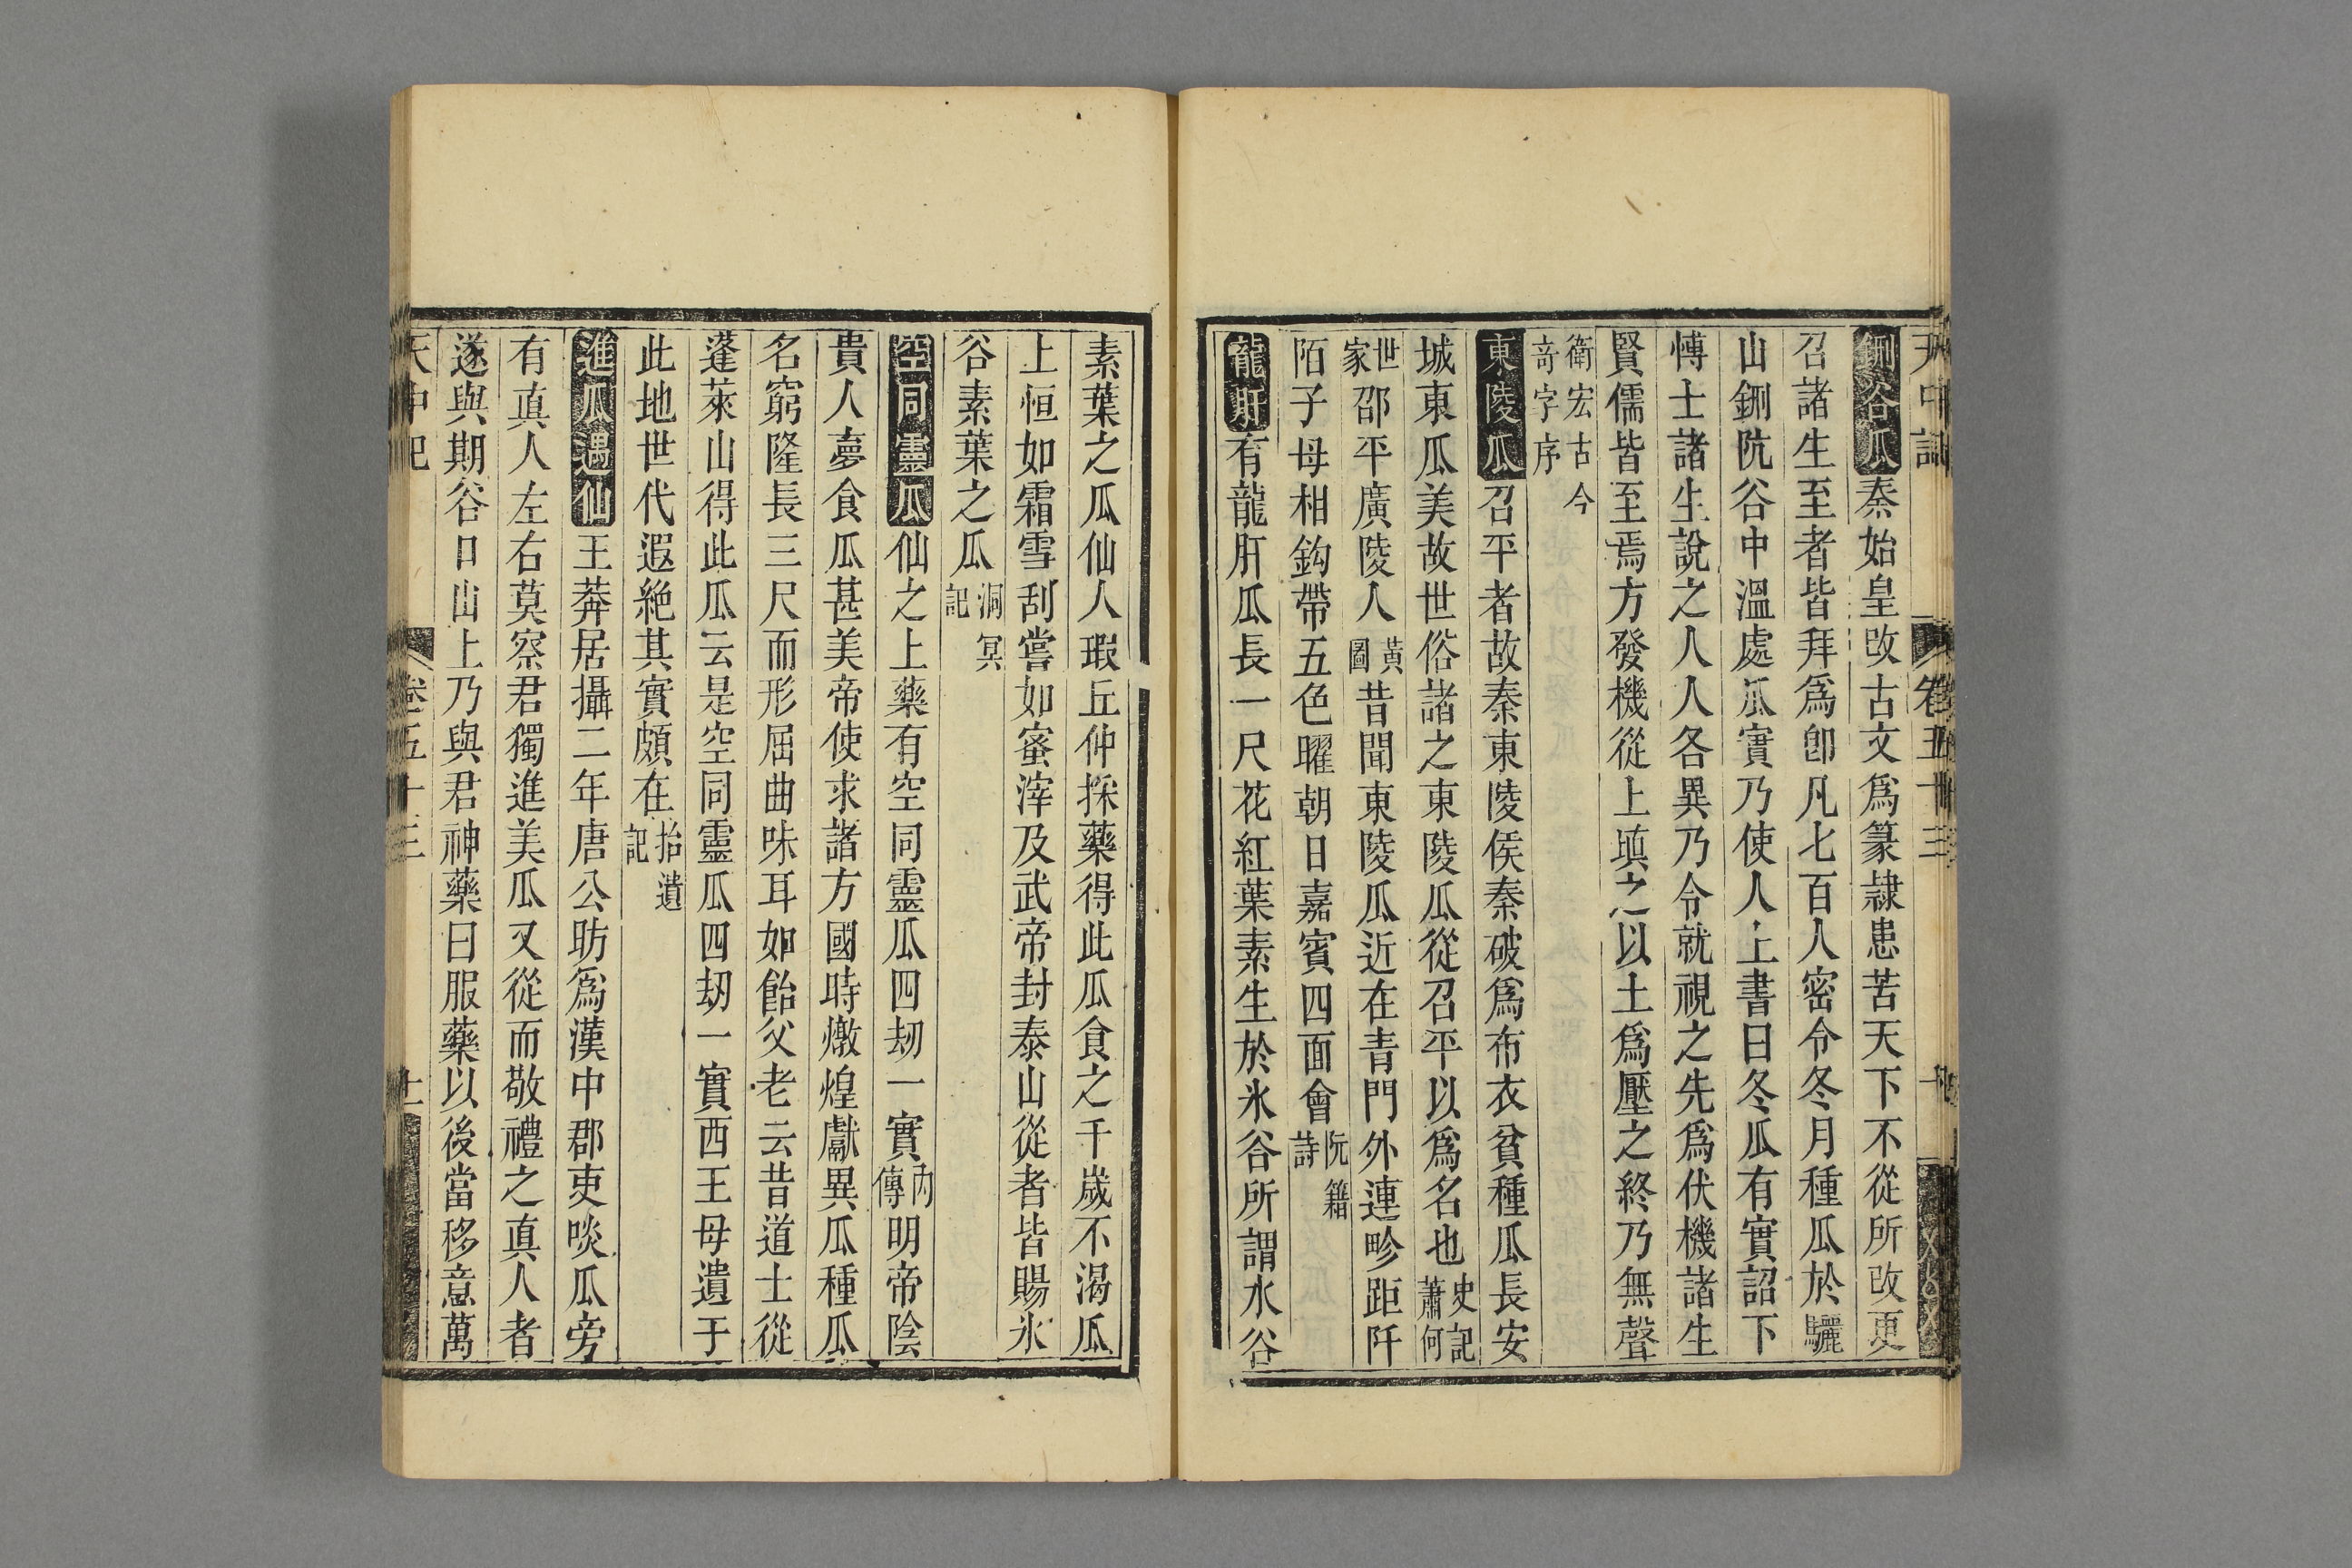 天中記 卷五十三
硎谷瓜秦始皇改古文爲篆隷患苦天下不從所改更
召諸生至者皆拜爲郎凡七百人密令冬月種瓜於驪
山硎阬谷中溫處瓜實乃使人上書曰冬瓜有實詔下
博士諸生說之人人各異乃令就視之先爲伏機諸生
賢儒皆至焉方發機從上塡之以土爲壓之終乃無聲
衛宏古今奇字序
東陵瓜召平者故秦東陵侯秦破爲布衣貧種瓜長安
城東瓜美故世俗諸之東陵瓜從召平以爲名也史記蕭何
世家邵平廣陵人黃圖昔聞東陵瓜近在青門外連畛距阡
陌子母相鈎帶五色曜朝日嘉賓四面會阮籍詩
龍肝有龍肝瓜長一尺花紅葉素生於氷谷所謂水谷
素葉之瓜仙人瑕丘仲採藥得此瓜食之千歲不渴瓜
上恒如霜雪刮嘗如蜜滓及武帝封泰山從者皆賜氷
谷素葉之瓜洞冥記
空同靈瓜仙之上藥有空同靈瓜四刼一實內傳明帝陰
貴人夢食瓜甚美帝使求諸方國時燉煌獻異瓜種瓜
名窮隆長三尺而形屈曲味耳如飴父老云昔道士從
蓬萊山得此瓜云是空同靈瓜四刼一實西王母遺于
此地世代遐絶其實頗在拾遺記
進瓜遇仙王莽居攝二年唐公昉爲漢中郡吏啖瓜旁
有眞人左右莫察君獨進美瓜又從而敬禮之眞人者
遂與期谷口山上乃與君神藥曰服藥以後當移意萬
天中記 卷五十三 十一